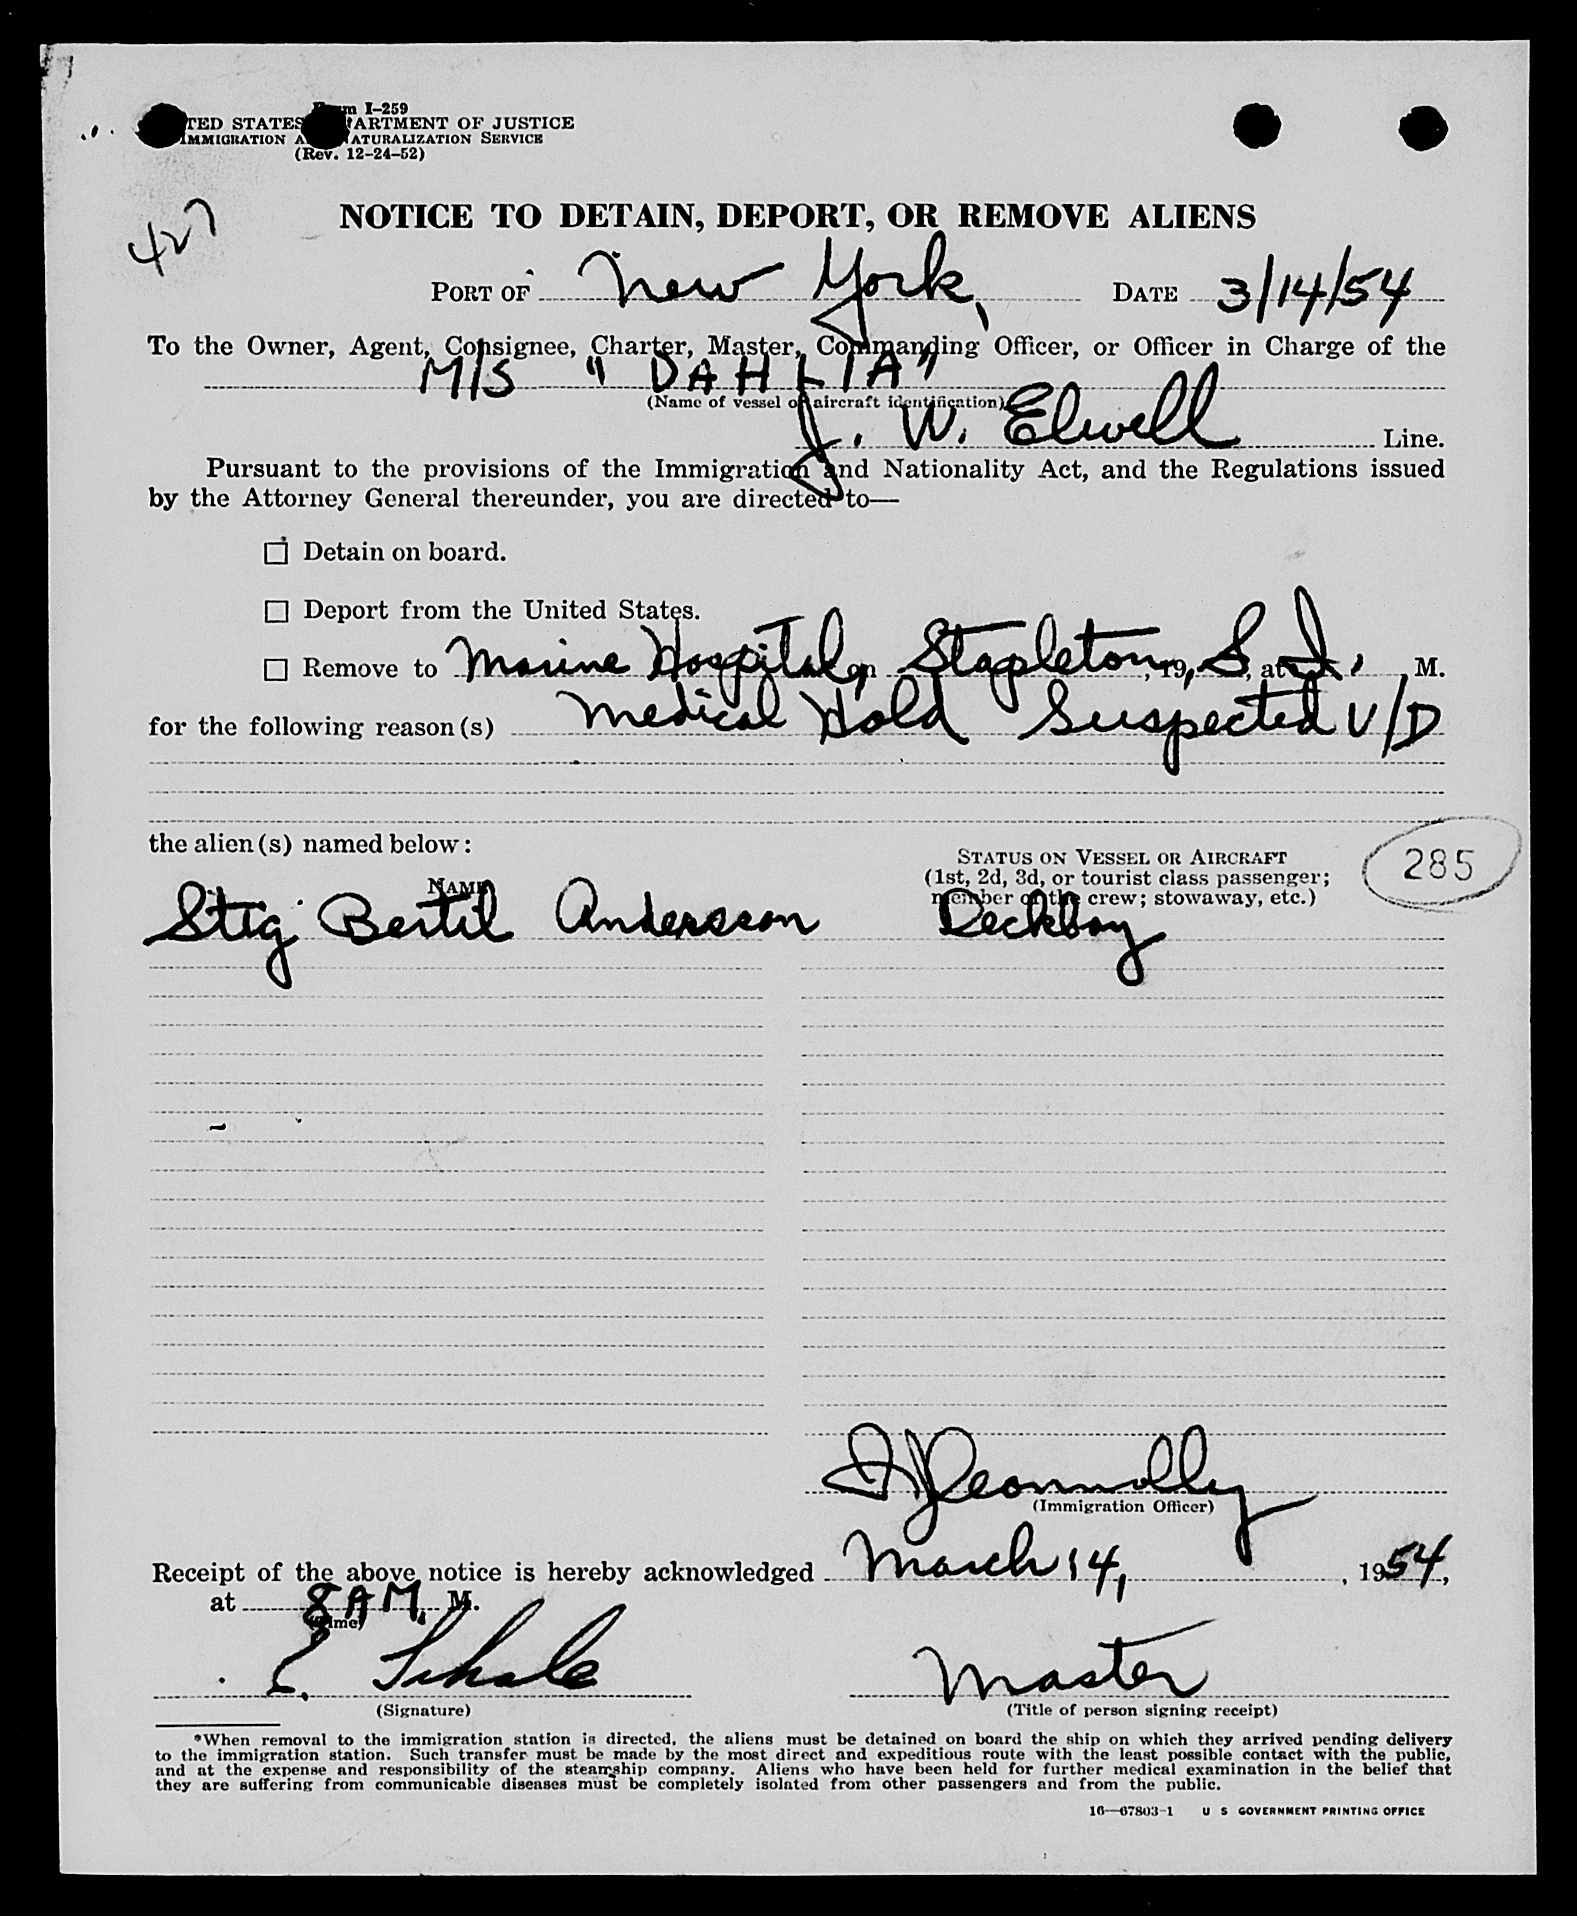 Form I-259
UNITED STATES DEPARTMENT OF JUSTICE
IMMIGRATION AND NATURALIZATION SERVICE
(Rev. 12-24-52)
427
NOTICE TO DETAIN, DEPORT, OR REMOVE ALIENS
PORT OF New York, DATE 3/14/54
To the Owner, Agent, Consignee, Charter, Master, Commanding Officer, or Officer in Charge of the
M/S "DAHLIA"
(Name of vessel or aircraft identification)
J. W. Elwell Line.
Pursuant to the provisions of the Immigration and Nationality Act, and the Regulations issued
by the Attorney General thereunder, you are directed to—
☐ Detain on board.
☐ Deport from the United States.
☐ Remove to Marine Hospital, on Stapleton, 19, S. at I. M.
for the following reason(s) Medical Hold Suspected V/D
the alien(s) named below:
STATUS ON VESSEL OR AIRCRAFT
285
NAME
(1st, 2d, 3d, or tourist class passenger;
member of the crew; stowaway, etc.)
Stig Bertil Andersson Deckboy
Connolly
(Immigration Officer)
Receipt of the above notice is hereby acknowledged March 14, 1954,
at 8 AM. M.
(Time)
E. Master
(Signature) (Title of person signing receipt)
*When removal to the immigration station is directed, the aliens must be detained on board the ship on which they arrived pending delivery
to the immigration station. Such transfer must be made by the most direct and expeditious route with the least possible contact with the public,
and at the expense and responsibility of the steamship company. Aliens who have been held for further medical examination in the belief that
they are suffering from communicable diseases must be completely isolated from other passengers and from the public.
16—67803-1 U S GOVERNMENT PRINTING OFFICE